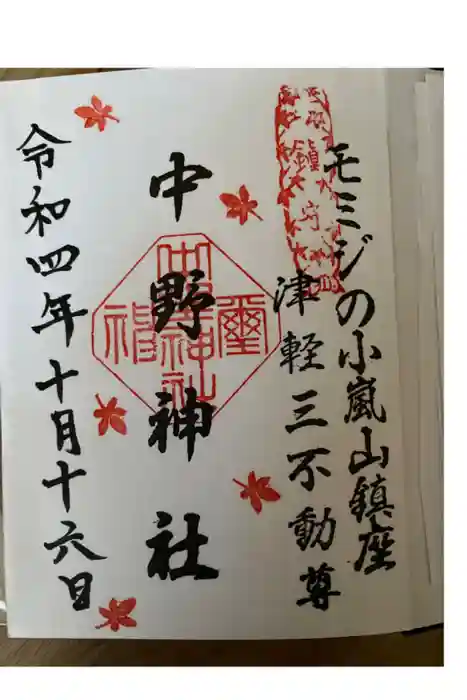 モミジの小嵐山鎮座
津軽三不動尊
中野神社
令和四年十月十六日